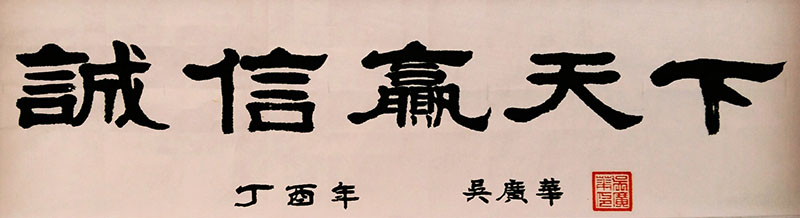 誠信贏天下
丁酉年 吳廣華
吳廣華印